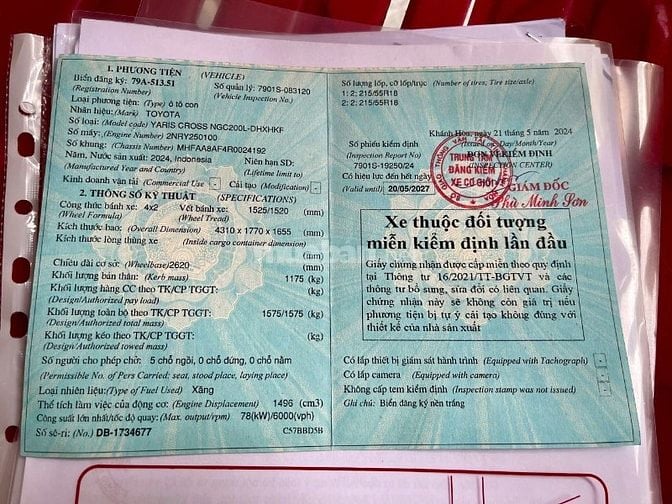 1. PHƯƠNG TIỆN (VEHICLE)
Biển đăng ký: 79A-513.51 Số quản lý: 7901S-083120
(Registration Number) (Vehicle Inspection No.)
Loại phương tiện: (Type) ô tô con
Nhãn hiệu: (Mark) TOYOTA
Số loại: (Model code) YARIS CROSS NGC200L-DHXHKF
Số máy: (Engine Number) 2NRY250100
Số khung: (Chassis Number) MHFAA8AF4R0024192
Năm, Nước sản xuất: 2024, Indonesia Niên hạn SD:
(Manufactured Year and Country) (Lifetime limit to)
Kinh doanh vận tải (Commercial Use - Cải tạo (Modification) -
2. THÔNG SỐ KỸ THUẬT (SPECIFICATIONS)
Công thức bánh xe: 4x2 Vết bánh xe: 1525/1520 (mm)
(Wheel Formula) (Wheel Tread)
Kích thước bao: (Overall Dimension) 4310 x 1770 x 1655 (mm)
Kích thước lòng thùng xe (Inside cargo container dimension)
(mm)
Chiều dài cơ sở: (Wheelbase) 2620 (mm)
Khối lượng bản thân: (Kerb mass) 1175 (kg)
Khối lượng hàng CC theo TK/CP TGGT: (kg)
(Design/Authorized pay load)
Khối lượng toàn bộ theo TK/CP TGGT: 1575/1575 (kg)
(Design/Authorized total mass)
Khối lượng kéo theo TK/CP TGGT: (kg)
(Design/Authorized towed mass)
Số người cho phép chở: 5 chỗ ngồi, 0 chỗ đứng, 0 chỗ nằm
(Permissible No. of Pers Carried: seat, stood place, laying place)
Loại nhiên liệu: (Type of Fuel Used) Xăng
Thể tích làm việc của động cơ: (Engine Displacement) 1496 (cm3)
Công suất lớn nhất/tốc độ quay: (Max. output/rpm) 78(kW)/6000(vph)
Số sê-ri: (No.) DB-1734677 C57BBD5B
Số lượng lốp, cỡ lốp/trục (Number of tires; Tire size/axle)
1: 2; 215/55R18
2: 2; 215/55R18
Khánh Hòa, ngày 21 tháng 5 năm 2024
Số phiếu kiểm định (Issued on: Day/Month/Year)
(Inspection Report No) ĐƠN VỊ KIỂM ĐỊNH
7901S-19250/24 (INSPECTION CENTER)
Có hiệu lực đến hết ngày
(Valid until) 20/05/2027
TRUNG TÂM
ĐĂNG KIỂM
XE CƠ GIỚI
GIÁM ĐỐC
Phù Minh Sơn
Xe thuộc đối tượng
miễn kiểm định lần đầu
Giấy chứng nhận được cấp miễn theo quy định
tại Thông tư 16/2021/TT-BGTVT và các
thông tư bổ sung, sửa đổi có liên quan. Giấy
chứng nhận này sẽ không còn giá trị nếu
phương tiện bị tự ý cải tạo không đúng với
thiết kế của nhà sản xuất
Có lắp thiết bị giám sát hành trình (Equipped with Tachograph) -
Có lắp camera (Equipped with camera) -
Không cấp tem kiểm định (Inspection stamp was not issued) -
Ghi chú: Biển đăng ký nền trắng